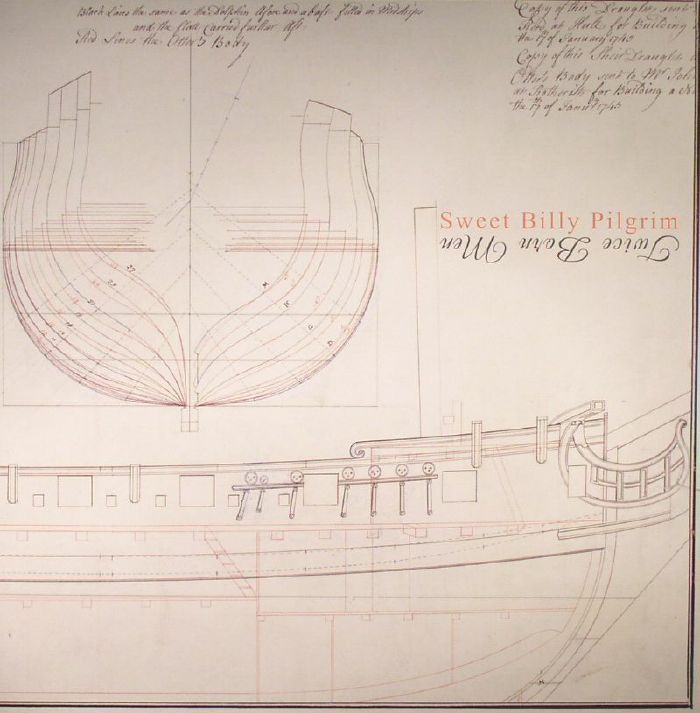 Black Lines the same as the Dolphin Afore and abaft filled in Midships
and the Floor Carried further Aft
Red Lines the Otter's Body
Copy of this Draught sent
at Hull for Building
the 17 of January 1743
Copy of this Sheer Draught
Otter's Body sent to Mr John
at Rotherith for Building a
the 17 of Janry 1743
Sweet Billy Pilgrim
Twice Born Men